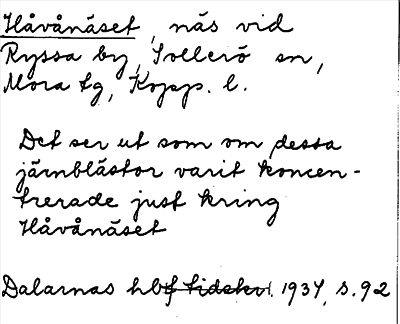 Håvånäset, näs vid
Ryssa by, Sollerö sn,
Mora tg, Kopp. l.
Det ser ut som om dessa
järnblästor varit koncen-
trerade just kring
Håvånäset
Dalarnas hbf tidskr. 1937, s. 92